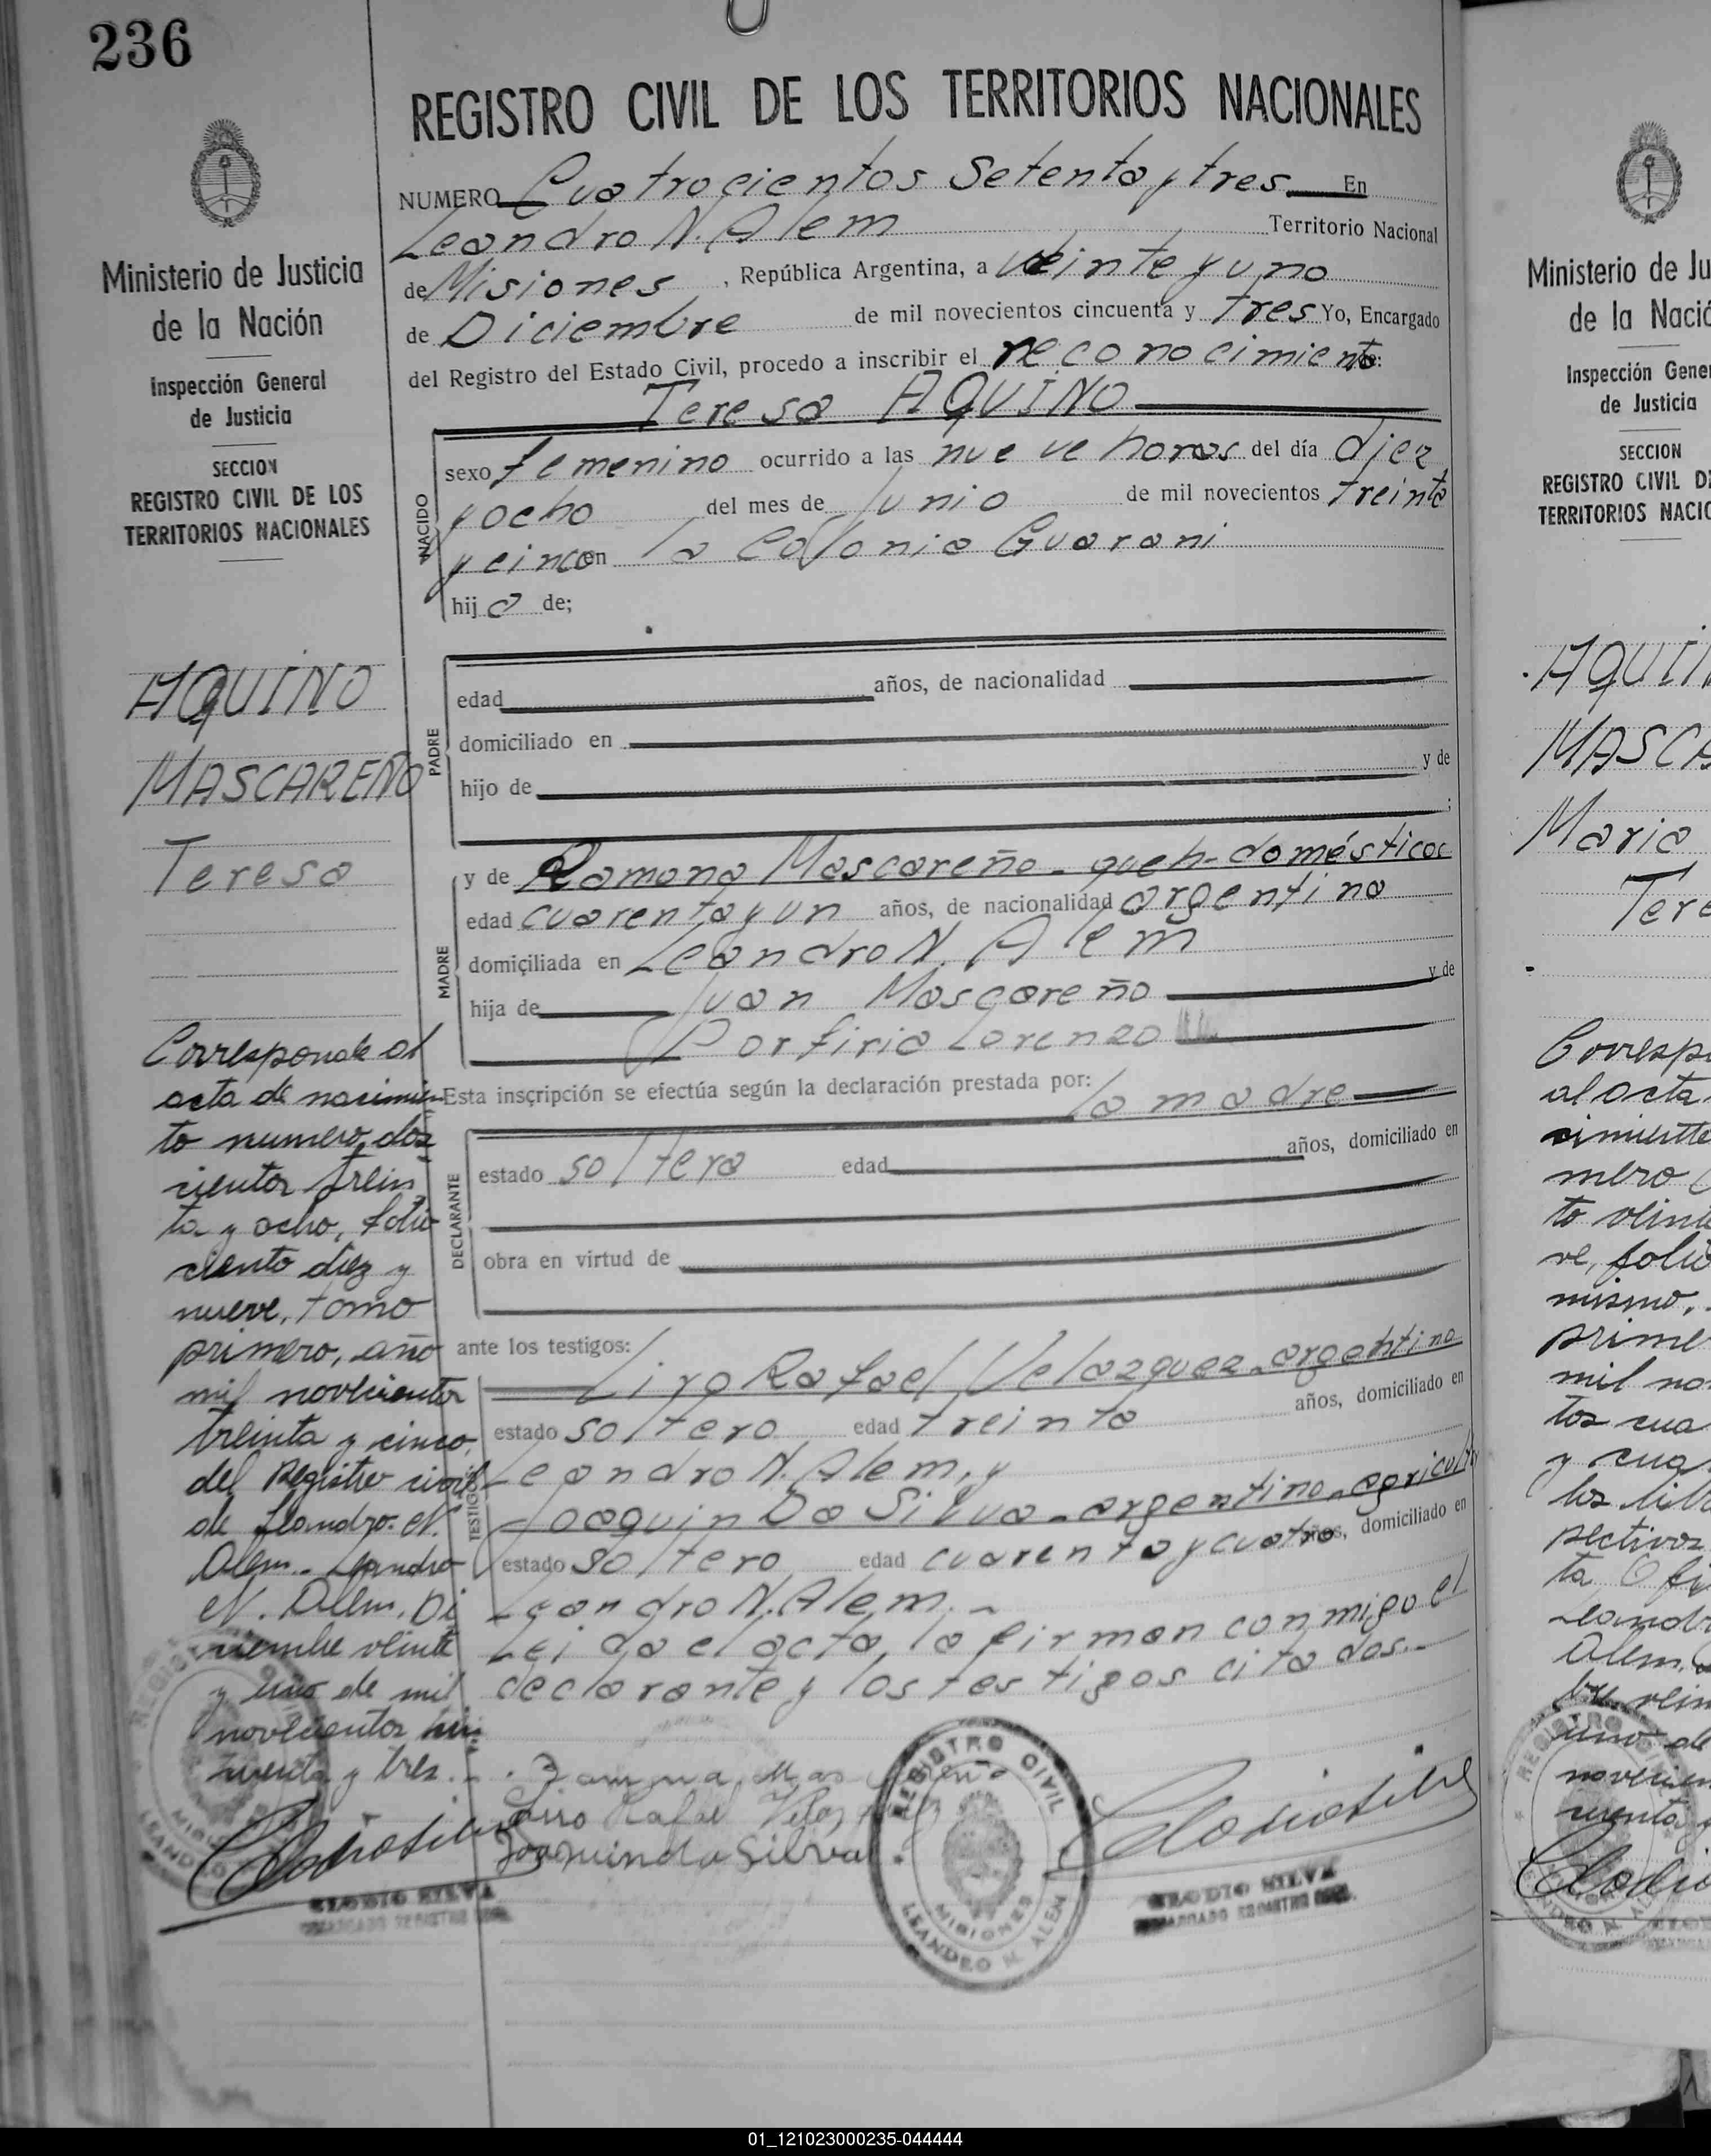 236
REGISTRO CIVIL DE LOS TERRITORIOS NACIONALES
Ministerio de Justicia
de la Nación
Inspección General
de Justicia
SECCION
REGISTRO CIVIL DE LOS
TERRITORIOS NACIONALES
AQUINO
MASCAREÑO
Teresa
Corresponde al
acta de nacimien
to numero dos
cientos trein
ta y ocho, folio
ciento diez y
nueve, tomo
primero, año
mil novecientos
treinta y cinco,
del Registro civil
de Leandro. N.
Alem.. Leandro
N. Alem. Di
ciembre veinte
y uno de mil
novecientos cin
cuenta y tres.
ELODIO SILVA
ENCARGADO REGISTRO CIVIL
NUMERO Cuatrocientos Setenta y tres En
Leandro N. Alem Territorio Nacional
de Misiones, República Argentina, a veinte y uno
de Diciembre de mil novecientos cincuenta y tres Yo, Encargado
del Registro del Estado Civil, procedo a inscribir el reconocimiento de:
Teresa AQUINO
NACIDO
sexo femenino ocurrido a las nueve horas del día diez
y ocho del mes de Junio de mil novecientos treinta
y cinco en la Colonia Guarani
hija de;
PADRE
edad años, de nacionalidad
domiciliado en
hijo de y de
;
MADRE
y de Ramona Mascareño - queh-domésticos
edad cuarenta y un años, de nacionalidad argentina
domiciliada en Leandro N. Alem
hija de Juan Mascareño y de
Porfiria Lorenzo
Esta inscripción se efectúa según la declaración prestada por: la madre
DECLARANTE
estado soltera edad años, domiciliado en
obra en virtud de
ante los testigos:
TESTIGOS
Liro Rafael Velazquez - argentino
estado soltero edad treinta años, domiciliado en
Leandro N. Alem, y
Joaquin Da Silva - argentino - agricult
estado soltero edad cuarenta y cuatro años, domiciliado en
Leandro N. Alem. -
Leida el acta, la firman conmigo el
declarante y los testigos citados.-
Ramona Mascareño
Liro Rafael Velazquez
Joaquin da Silva
REGISTRO CIVIL
MISIONES
LEANDRO N. ALEM
ELODIO SILVA
ENCARGADO REGISTRO CIVIL
Ministerio de Ju
de la Nació
Inspección Gene
de Justicia
SECCION
REGISTRO CIVIL D
TERRITORIOS NACIO
AQUI
MASCA
Maria
Tere
Corresp
al acta
cimiento
mero
to veinti
ve, folio
mismo,
prime
mil no
tos cua
y cua
los lib
pectivos
ta Ofi
Leandr
Alem.
bre vein
uno de
novecien
cuenta y
01_121023000235-044444